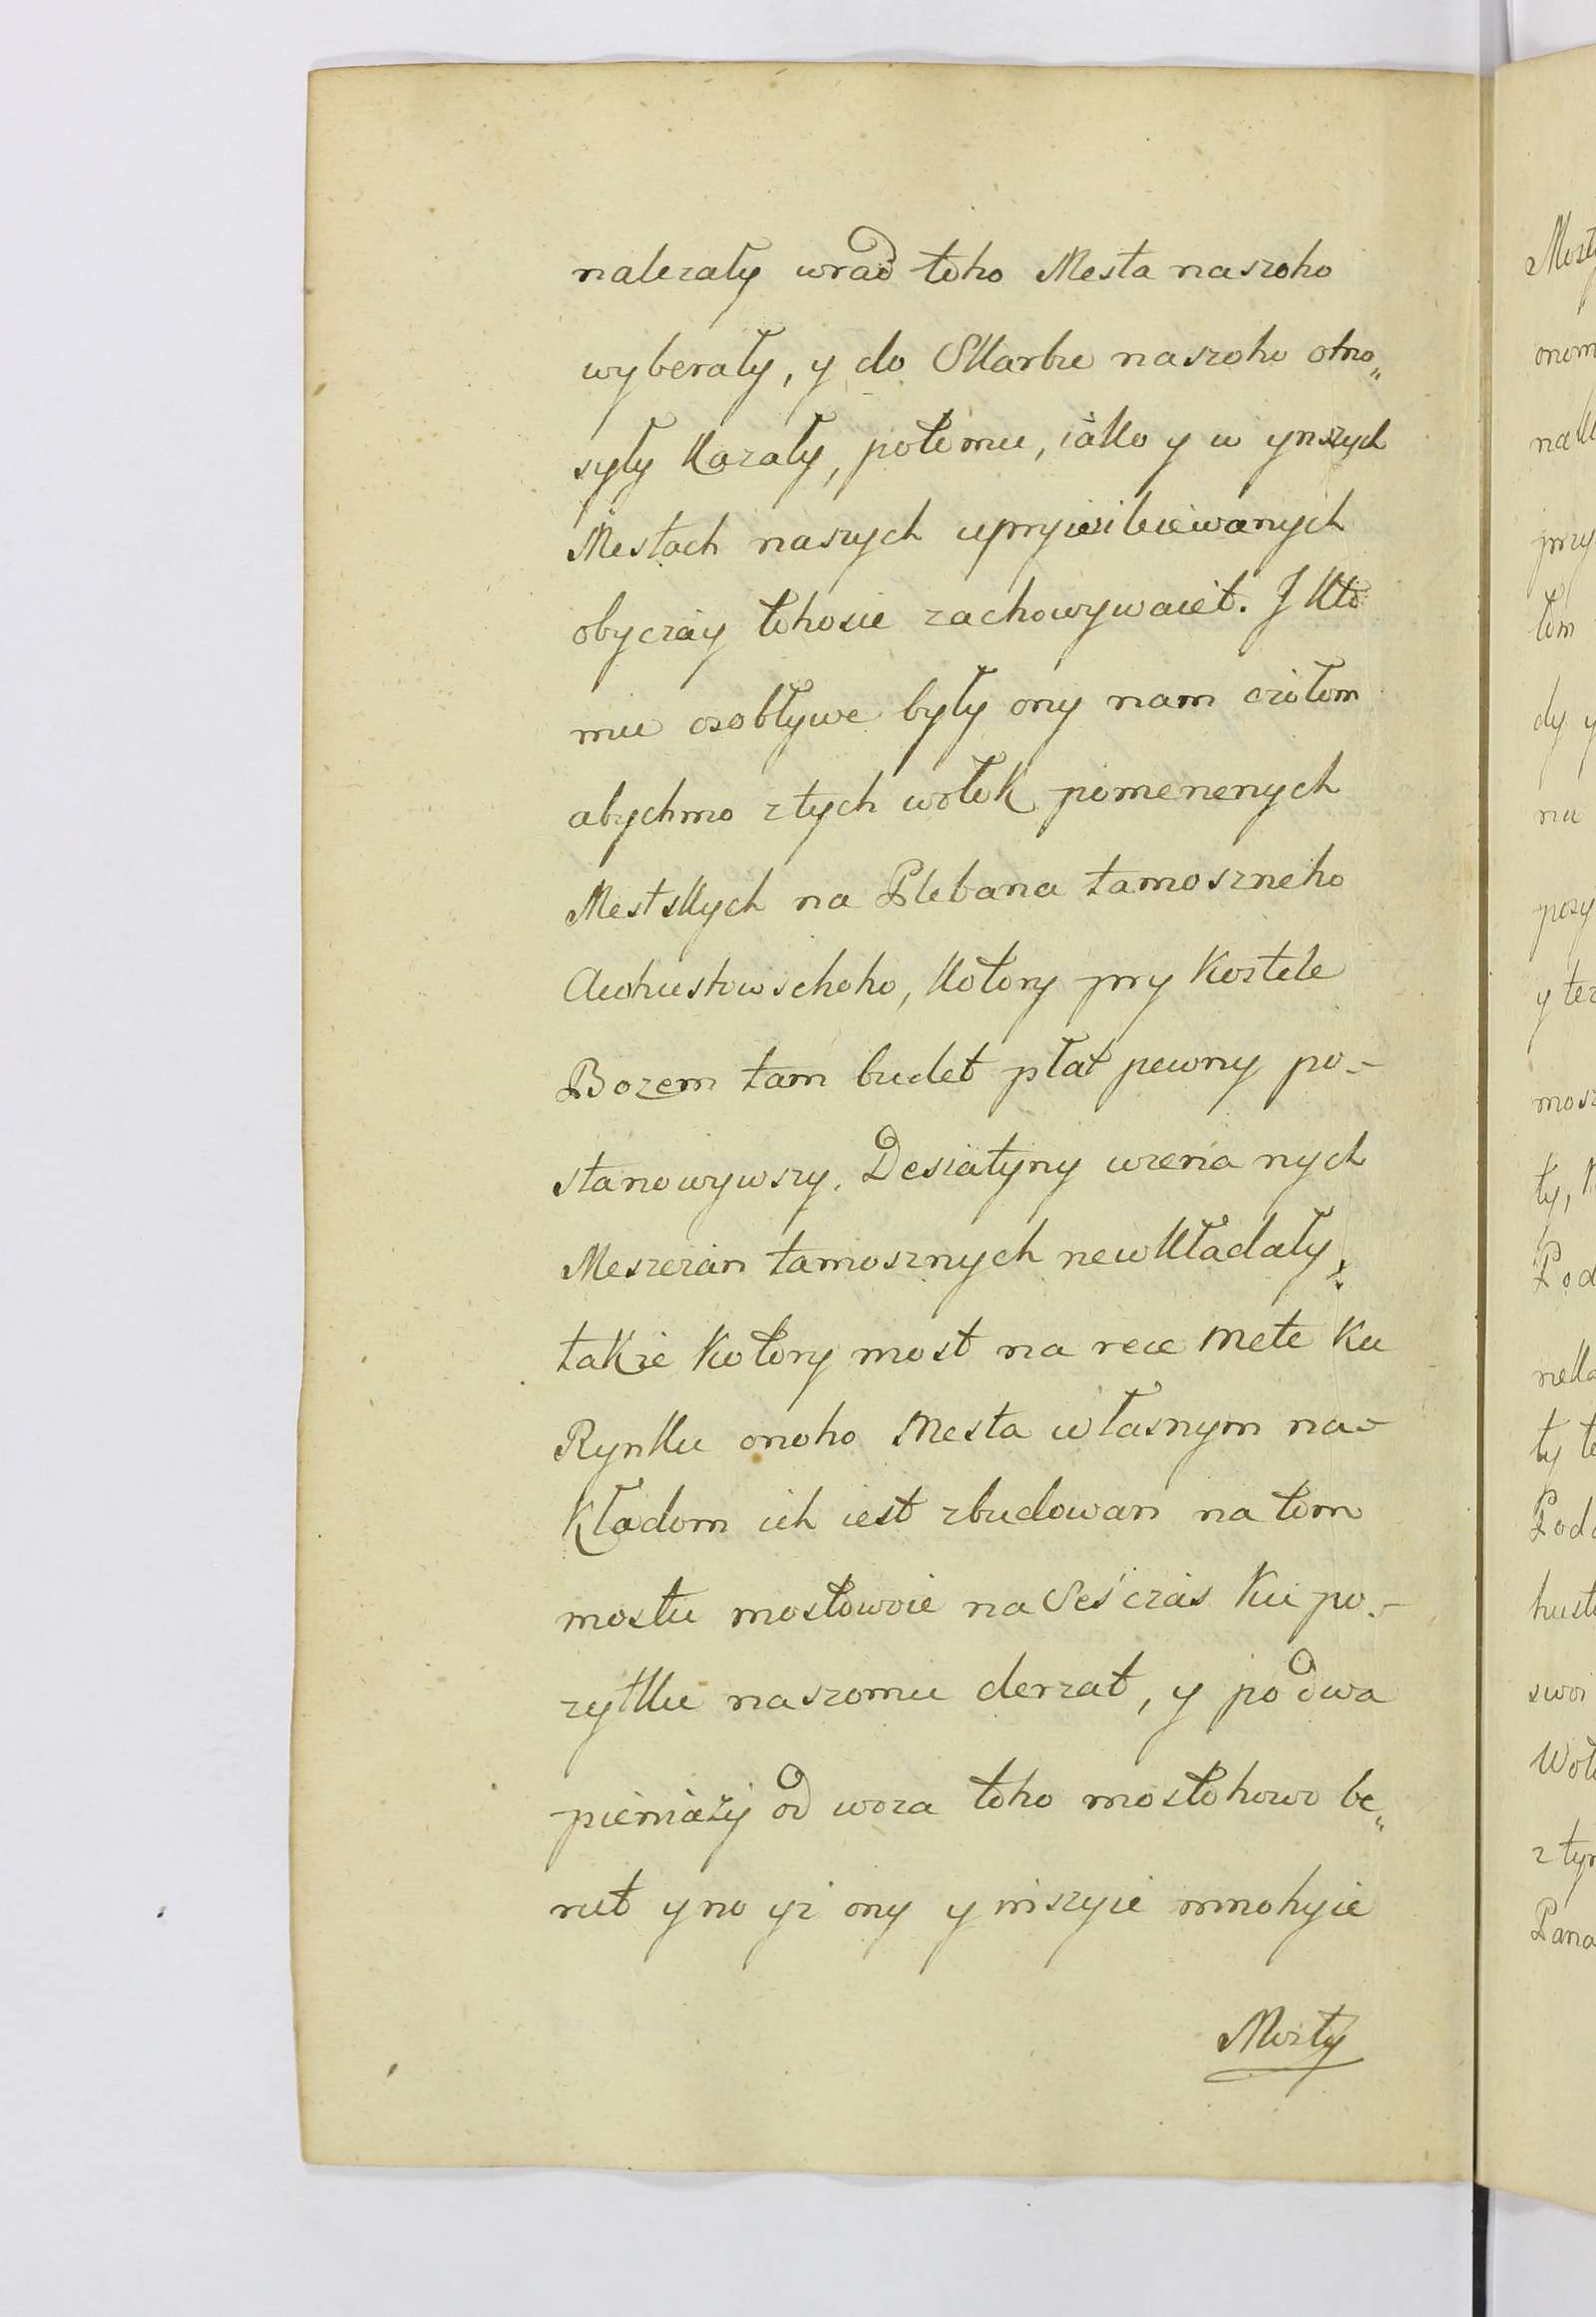 nalezały wrad toho Mesta naszoho
wyberały, y do Skarbu naszoho otno„
syły kazały, potomu, iako y w ynszych
Mestach naszych uprywileiewanych
obyczay tohosie zachowywaiet. J kto
mu osobływe były ony nam czołom
abychmo z tych włok pomenenych
Mestskych na Plebana tamoszneho
Auhustowschoho, kotory pry Kostele
Bozem tam budet płat pewny po-
stanowywszy. Desiatyny wzena nych
Meszczan tamosznych newkładały,
takze kotory most na rece Mete ku
Rynku onoho Mesta własnym na-
kładom ich iest zbudowan na tom
mostu mostowoie na Seś czas ku po-
zytku naszomu derzat, y po dwa
pieniaży od woza toho mostohowo be„
rut yno yz ony ynszyie mnohyie
Mosty
Mosty
onom
nale
przy
tom
dy y
na
pozy
y tez
mosz
ty, k
Pod
neko
ty te
Podd
hust
swoi
Woło
z tym
Pana